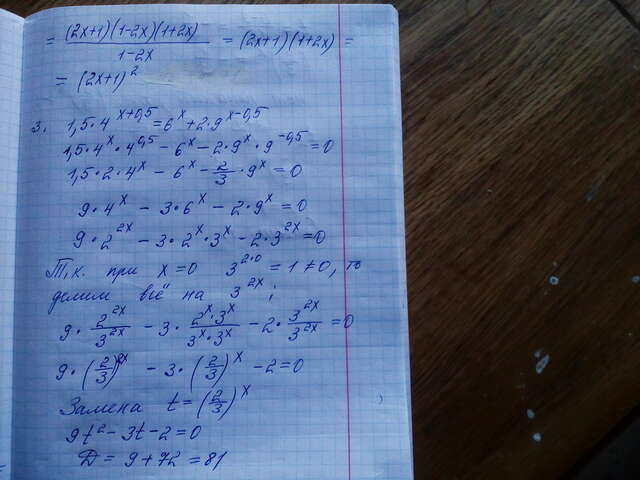 = (2x+1)(1-2x)(1+2x) / 1-2x = (2x+1)(1+2x) =
= (2x+1)²
3. 1,5·4^(x+0,5) = 6^x + 2·9^(x-0,5)
1,5·4^x·4^0,5 - 6^x - 2·9^x·9^(-0,5) = 0
1,5·2·4^x - 6^x - 2/3·9^x = 0
9·4^x - 3·6^x - 2·9^x = 0
9·2^(2x) - 3·2^x·3^x - 2·3^(2x) = 0
Т.к. при x = 0 3^(2·0) = 1 ≠ 0, то
делим всё на 3^(2x);
9·2^(2x)/3^(2x) - 3·2^x·3^x/3^x·3^x - 2·3^(2x)/3^(2x) = 0
9·(2/3)^(2x) - 3·(2/3)^x - 2 = 0
Замена t = (2/3)^x
9t² - 3t - 2 = 0
D = 9 + 72 = 81